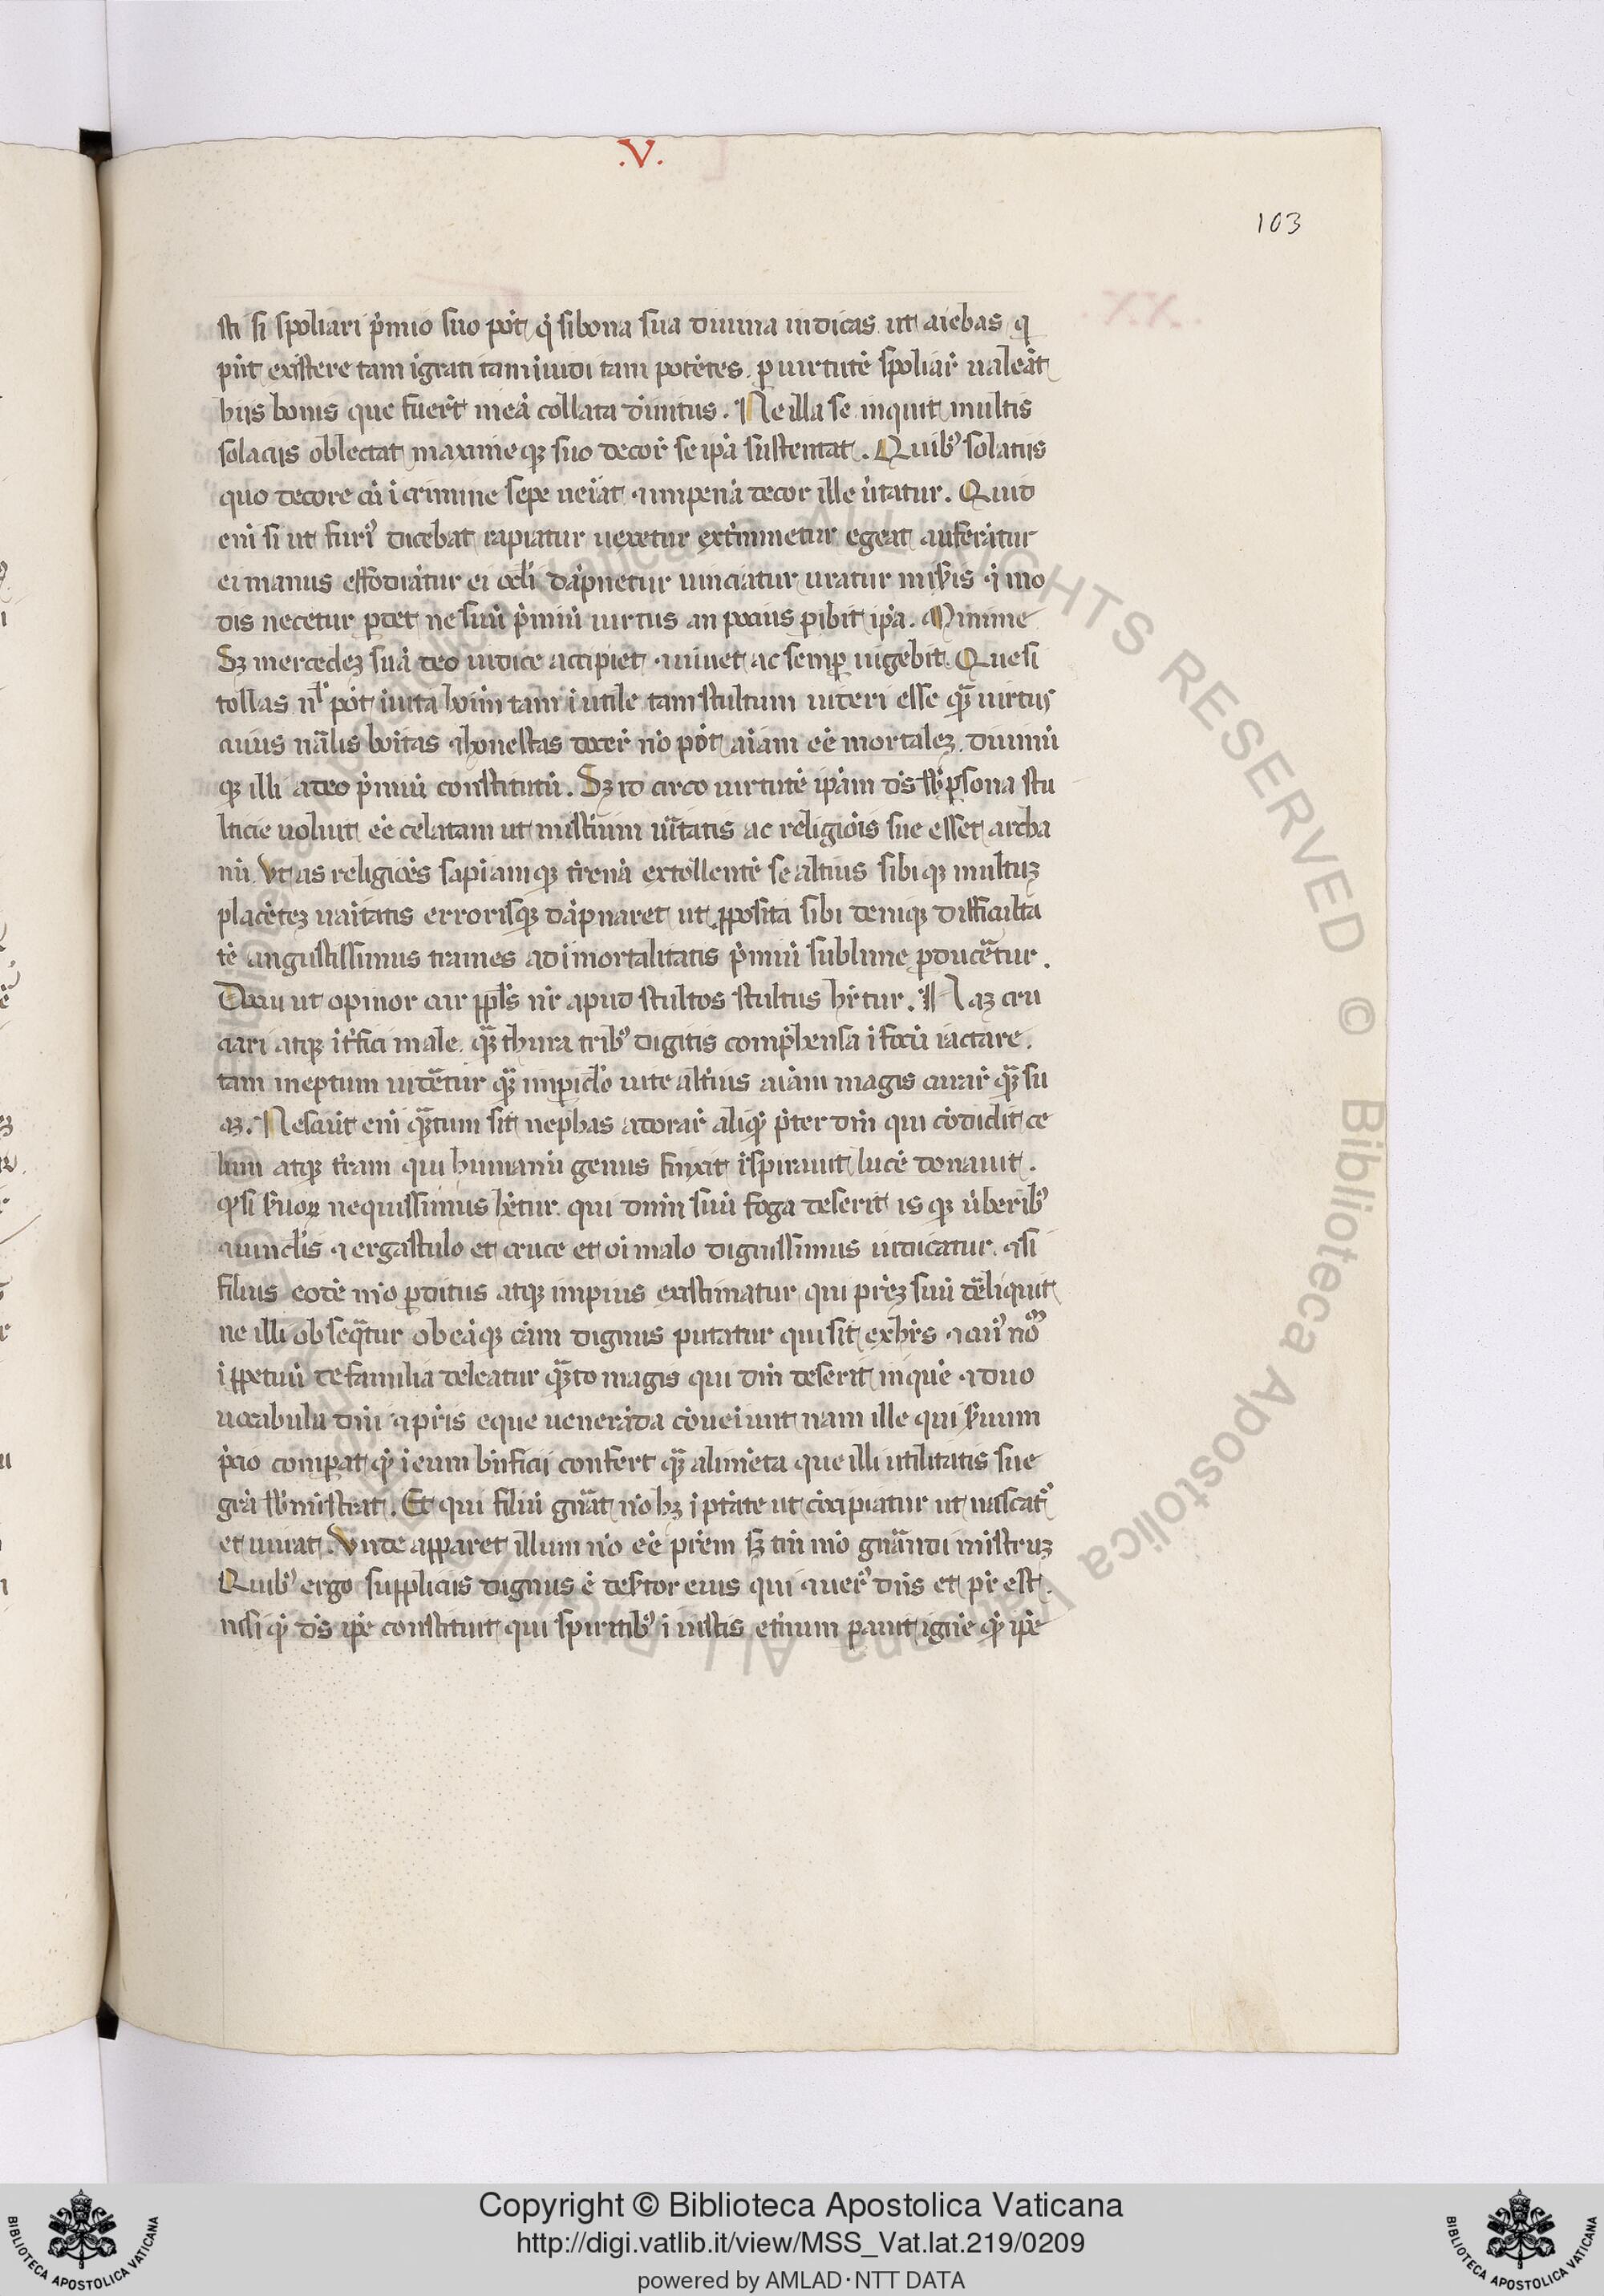 .V.
103
sti si spoliari p̄mio suo pōt q̇ si bona sua diuina iudicas ut aiebas q
pn̄t existere tam īgrati tam īuidi tam potētes. ꝑ uirtutē spoliar̄ ualeāt
hiis bonis que fuer̄t meā collata diuitus. Ne illa se inquit multis
solaciis oblectat maximeqꝫ suo decor̄ se ip̄a sustentat. Quibꝰ solatiis
quo decore cū ī crimine sepe ueīat ⁊ impenā decor ille ūtatur. Quid
eni si ut furiꝰ dicebat rapiatur uexetur extīminetur egeat auferātur
ei manus effodiātur ei ocl̄i dāpnetur uinciatur uratur miris ⁊ mo
dis necetur ꝑdet ne suū p̄miū uirtus an pocius ꝑibit ip̄a. Minime
Sꝫ mercedeꝫ suā deo iudice accipiet ⁊ uiuet ac semꝑ uigebit. Que si
tollas nl̄ pōt ī uita hoīm tam īutile tam stultum uideri esse qꝫ̄ uirtus
cuius nālis boītas ⁊ honestas docer̄ nō pōt aīam eē mortaleꝫ. diuinū
qꝫ illi a deo p̄miū constitutū. Sꝫ id circo uirtutē ip̄am d̄s sb̄ ꝑsona stu
lticie uoluit eē celatam ut mist̄ium uītatis ac religiōis sue esset archa
nū. Vt as religiōēs sapīamqꝫ t̄renā extollentē se altius sibiqꝫ multuꝫ
placēteꝫ uaītatis errorisqꝫ dāpnaret ut ꝓposita sibi deniqꝫ difficulta
tē angustissimus trames ad imortalitatis p̄miū sublime ꝑducētur.
Docui ut opinor cur ppl̄s nr̄ apud stultos stultus hr̄tur. ¶ Naꝫ cru
ciari atqꝫ īt̄fici male. qꝫ̄ thura tribꝰ digitis comp̄hensa ī focū iactare.
tam ineptum uidētur qꝫ̄ imꝑicl̄o uite alt̄ius aīam magis curar̄ qꝫ̄ su
aꝫ. Nesciūt eni qꝫ̄tum sit nephas adorar̄ aliqꝫ̄ p̄ter dm̄ qui cōdidit ce
lum atqꝫ t̄ram qui humanū genus finxit īspirauit lucē donauit.
q̇si ẜuoꝝ nequissimus hētur. qui dnm̄ suū foga deserit is qꝫ ūberibꝰ
⁊ uincl̄is ⁊ ergastulo et cruce et oī malo dignissimus iudicatur ⁊ si
filius eodē mō ꝑditus atqꝫ impius existimatur qui pr̄eꝫ suū dēliquit
ne illi obseqētur ob eāqꝫ cām dignus putatur qui sit exhr̄s ⁊ cuiꝰ nōᵐ
ī ꝑpetuū de familia deleatur qꝫ̄to magis qui dm̄ deserit in quē ⁊ duo
uocabula dnī ⁊ pr̄is eque ueneāda cōueīunt nam ille qui ẜuum
p̄cio comꝑat qꝫ̄ ī eum bn̄ficii confert qꝫ̄ alimēta que illi utilitatis sue
grā sb̄ministrat. Et qui filiū gn̄at nō hꝫ ī ptāte ut cōcipiatur ut nascatꝰ
et uiuat. Vnde apparet illum nō eē pr̄em sꝫ tm̄ mō gn̄andi mīstruꝫ
Quibꝰ ergo suppliciis dignus ē desertor eius qui ⁊ uerꝰ dn̄s et pr̄ est.
nisi qꝫ̄ d̄s ip̄e constituit qui spiritibꝰ ī iustis et̄num ꝑauit ignē qꝫ̄ ip̄e
Copyright © Biblioteca Apostolica Vaticana
http://digi.vatlib.it/view/MSS_Vat.lat.219/0209
powered by AMLAD·NTT DATA
BIBLIOTECA APOSTOLICA VATICANA
BIBLIOTECA APOSTOLICA VATICANA